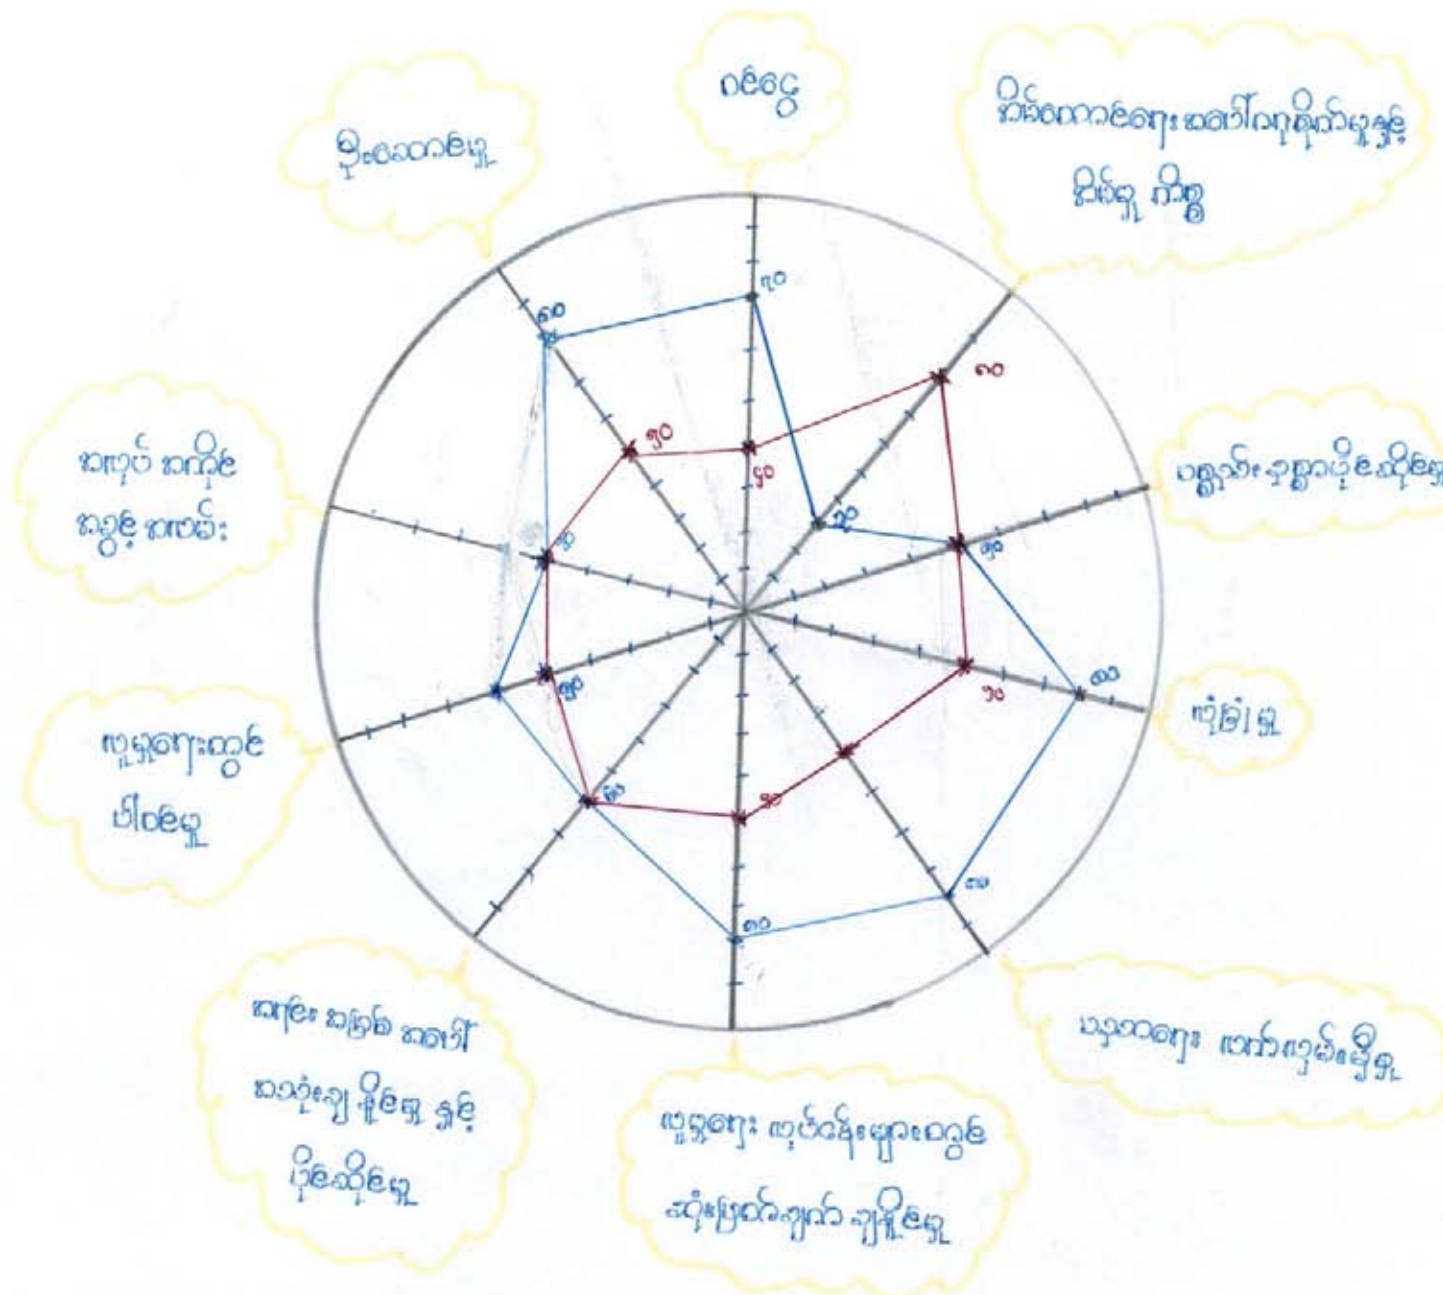 ဝင်ငွေ
အိမ်ထောင်ရေး အပေါ်ဂရုစိုက်မှုနှင့်
အိမ်မှု ကိစ္စ
ပစ္စည်းဥစ္စာပိုင်ဆိုင်မှု
လုံခြုံမှု
ပညာရေး လက်လှမ်းမှီမှု
လူမှုရေး လုပ်ငန်းများတွင်
ဆုံးဖြတ်ချက် ချနိုင်မှု
အရင်း အမြစ် အပေါ်
အသုံးချ နိုင်မှု နှင့်
ပိုင်ဆိုင်မှု
လူမှုရေးတွင်
ပါဝင်မှု
အလုပ် အကိုင်
အခွင့် အလမ်း
ဦးဆောင်မှု
၇၀
၈၀
၅၀
၄၀
၂၀
၈၀
၅၀
၈၀
၅၀
၅၀
၈၀
၅၀
၅၀